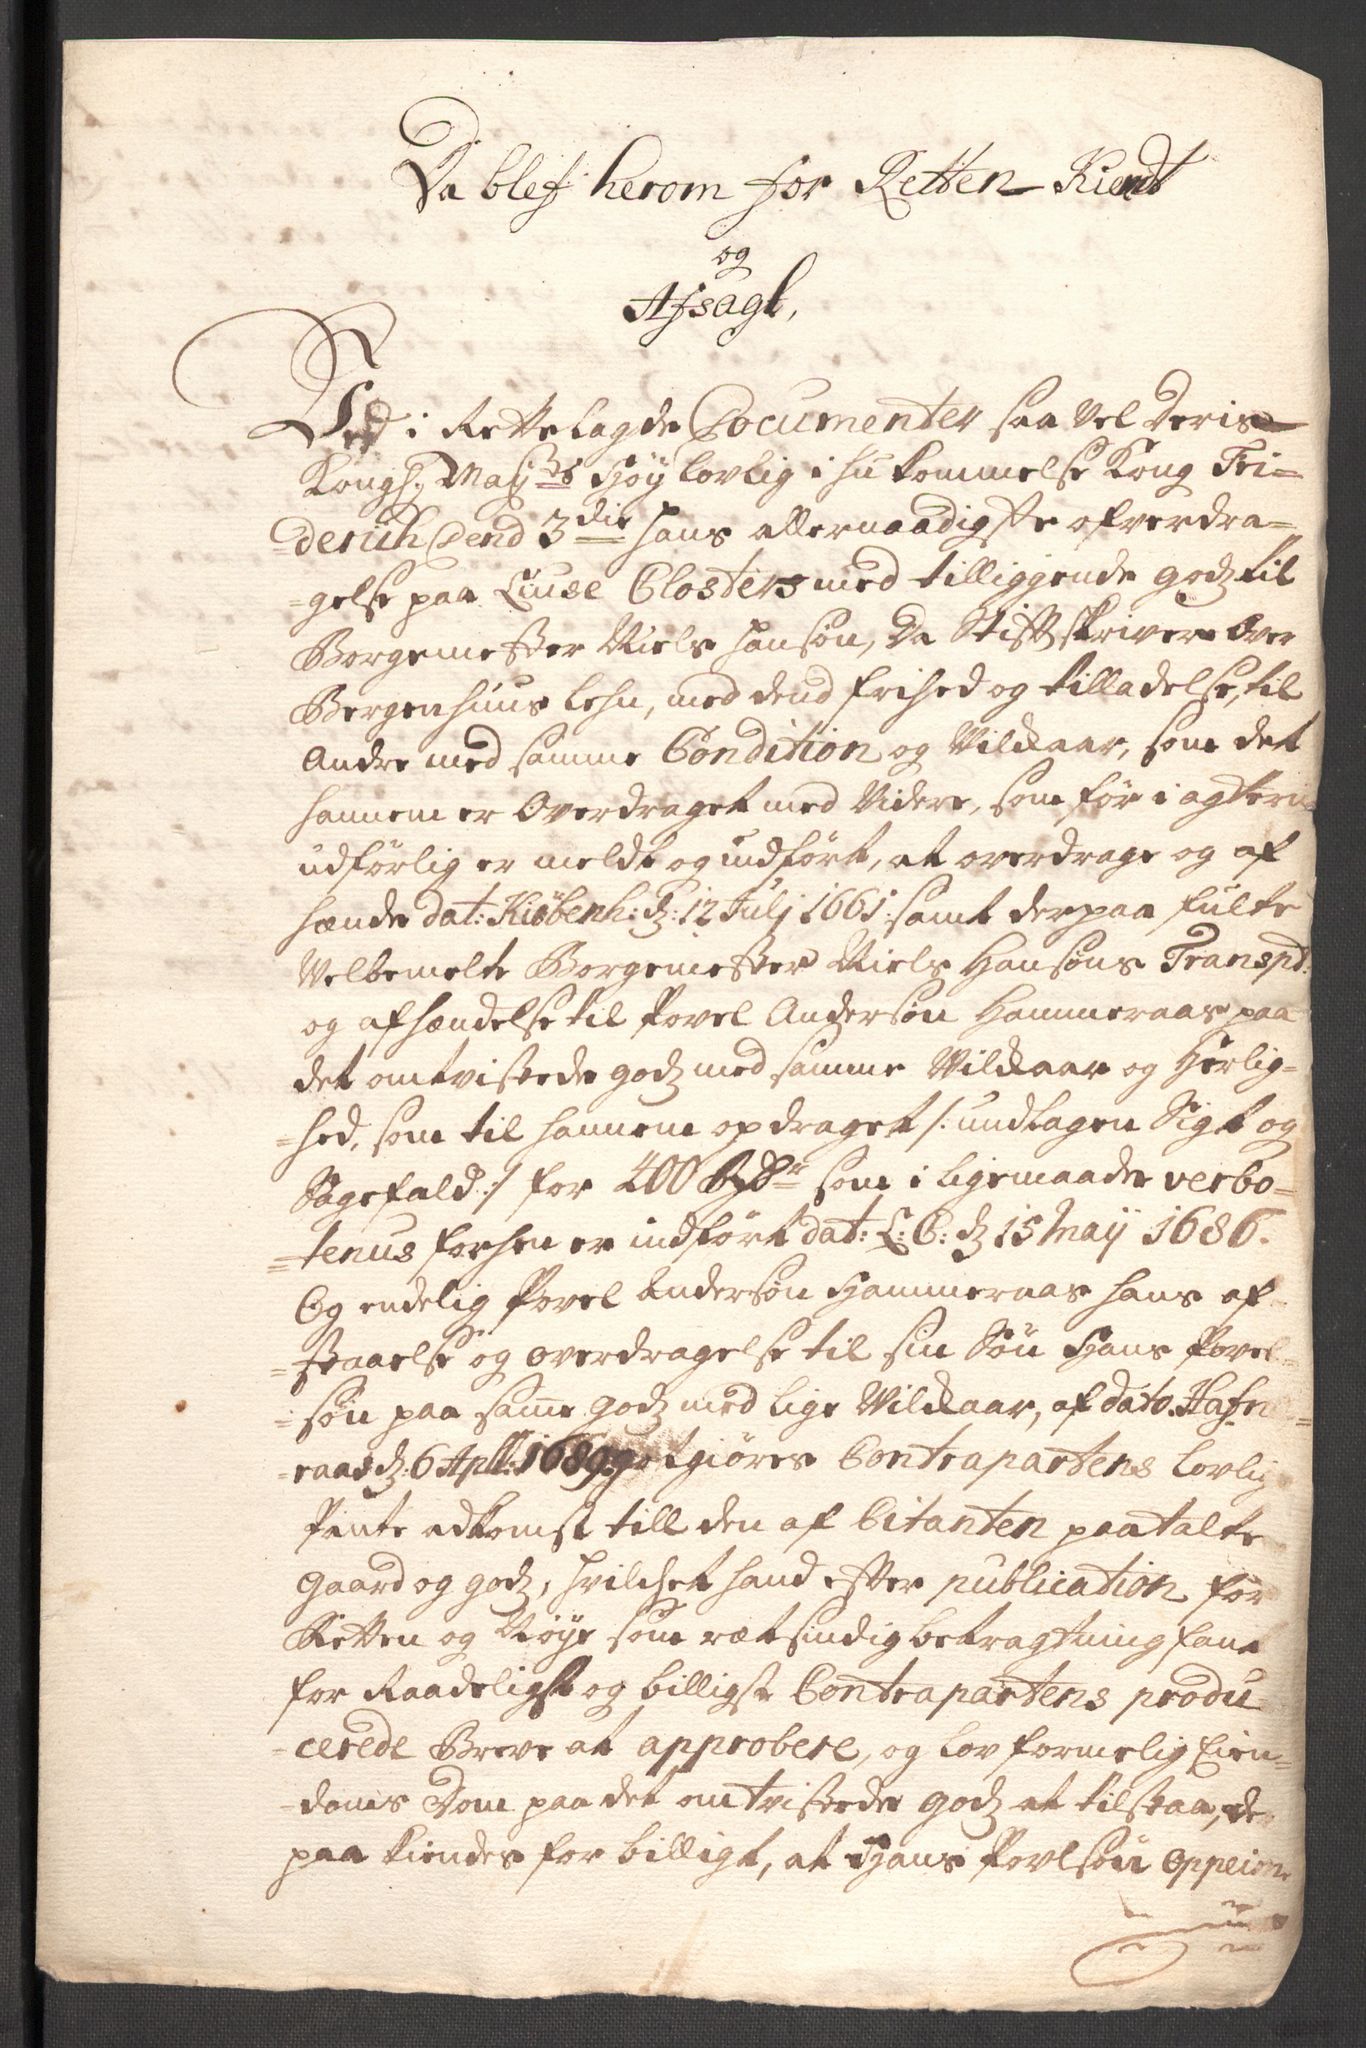 Da blef herom for Retten Kiendt
og
Afsagt,
Ved i Rettelagde Documenter saa vel Deris
Kongl. May:ts Høylovlig ihukommelse Kong Fri-
=derich dend 3die hans allernaadigste ofverdra-
=gelse paa Liuse Closters med tilliggende godz til
Borgemester Niels Hansøn, Da Stiftskriver over
Bergenhuus Lehn, med dend frihed og tilladelse, til
Andre med samme Condition og Vilkaar, som det
hannem er Overdraget med Videre, som før i agten
udførlig er meldt og indført, at overdrage og af
hænde dat: Kiøbenh: d: 12 Julj 1661: samt derpaa fulte
Velbemelte Borgemester Niels Hansøns Transpt:
og afhændelse til Povel Andersøn Hammeraas paa
det omtvistede godz med samme Vilkaar og Herlig-
=hed, som til hannem opdraget /: undtagen Sigt og
Sagefald :/ for 400 Rdr som i ligemaade verbo-
=tenus forhen er indført dat: L: C: d 15 Maij 1686.
Og endelig Povel Andersøn Hammeraas hans af-
=staaelse og overdragelse til sin Søn Hans Povel-
=søn paa samme godz med lige Vilkaar, af dato Hafne
=raas d: 6 Apll: 1689, gotgiøres Contrapartens lovlig
Pante adkomst till den af Citanten paatalte
gaard og godz, hvilchet hand efter publication for
Retten og Nøye som rætsindig betragtning fant
for Raadeligst og billigst Contrapartens produ-
=cerede Breve at approbere, og lovformelig Eien-
=doms Dom paa det omtvistede godz at tilstaa, der
paa kiendes for billigt, at Hans Povlsøn